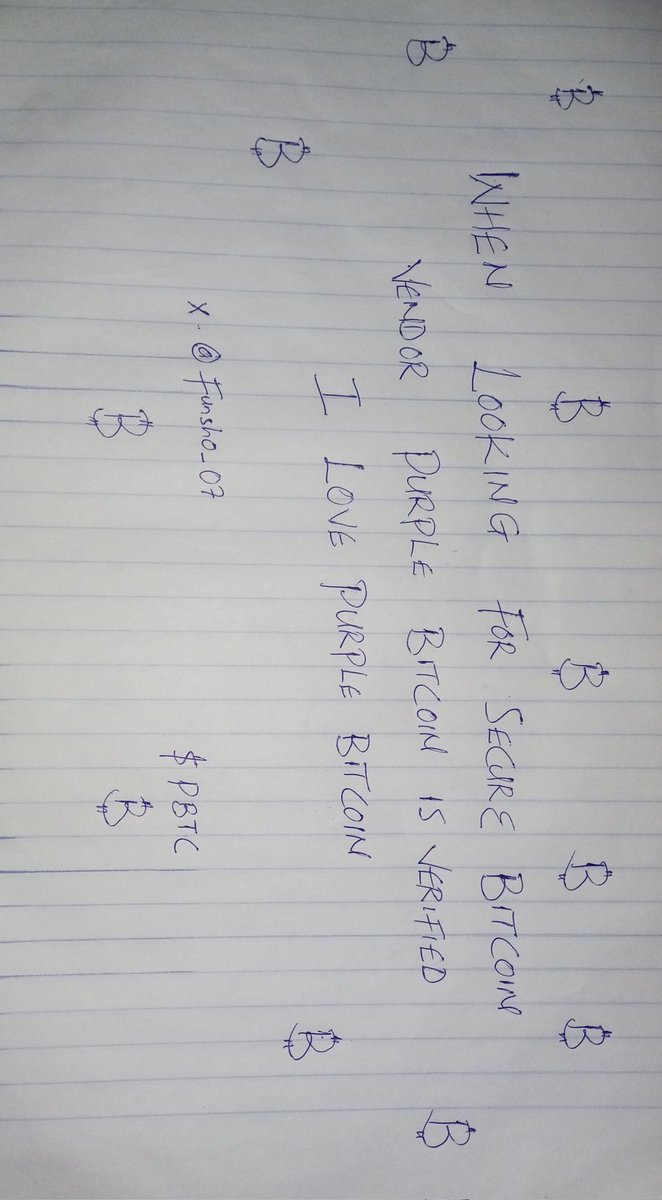 WHEN LOOKING FOR SECURE BITCOIN
VENDOR PURPLE BITCOIN IS VERIFIED
I LOVE PURPLE BITCOIN
X. @Funsho_07
$PBTC